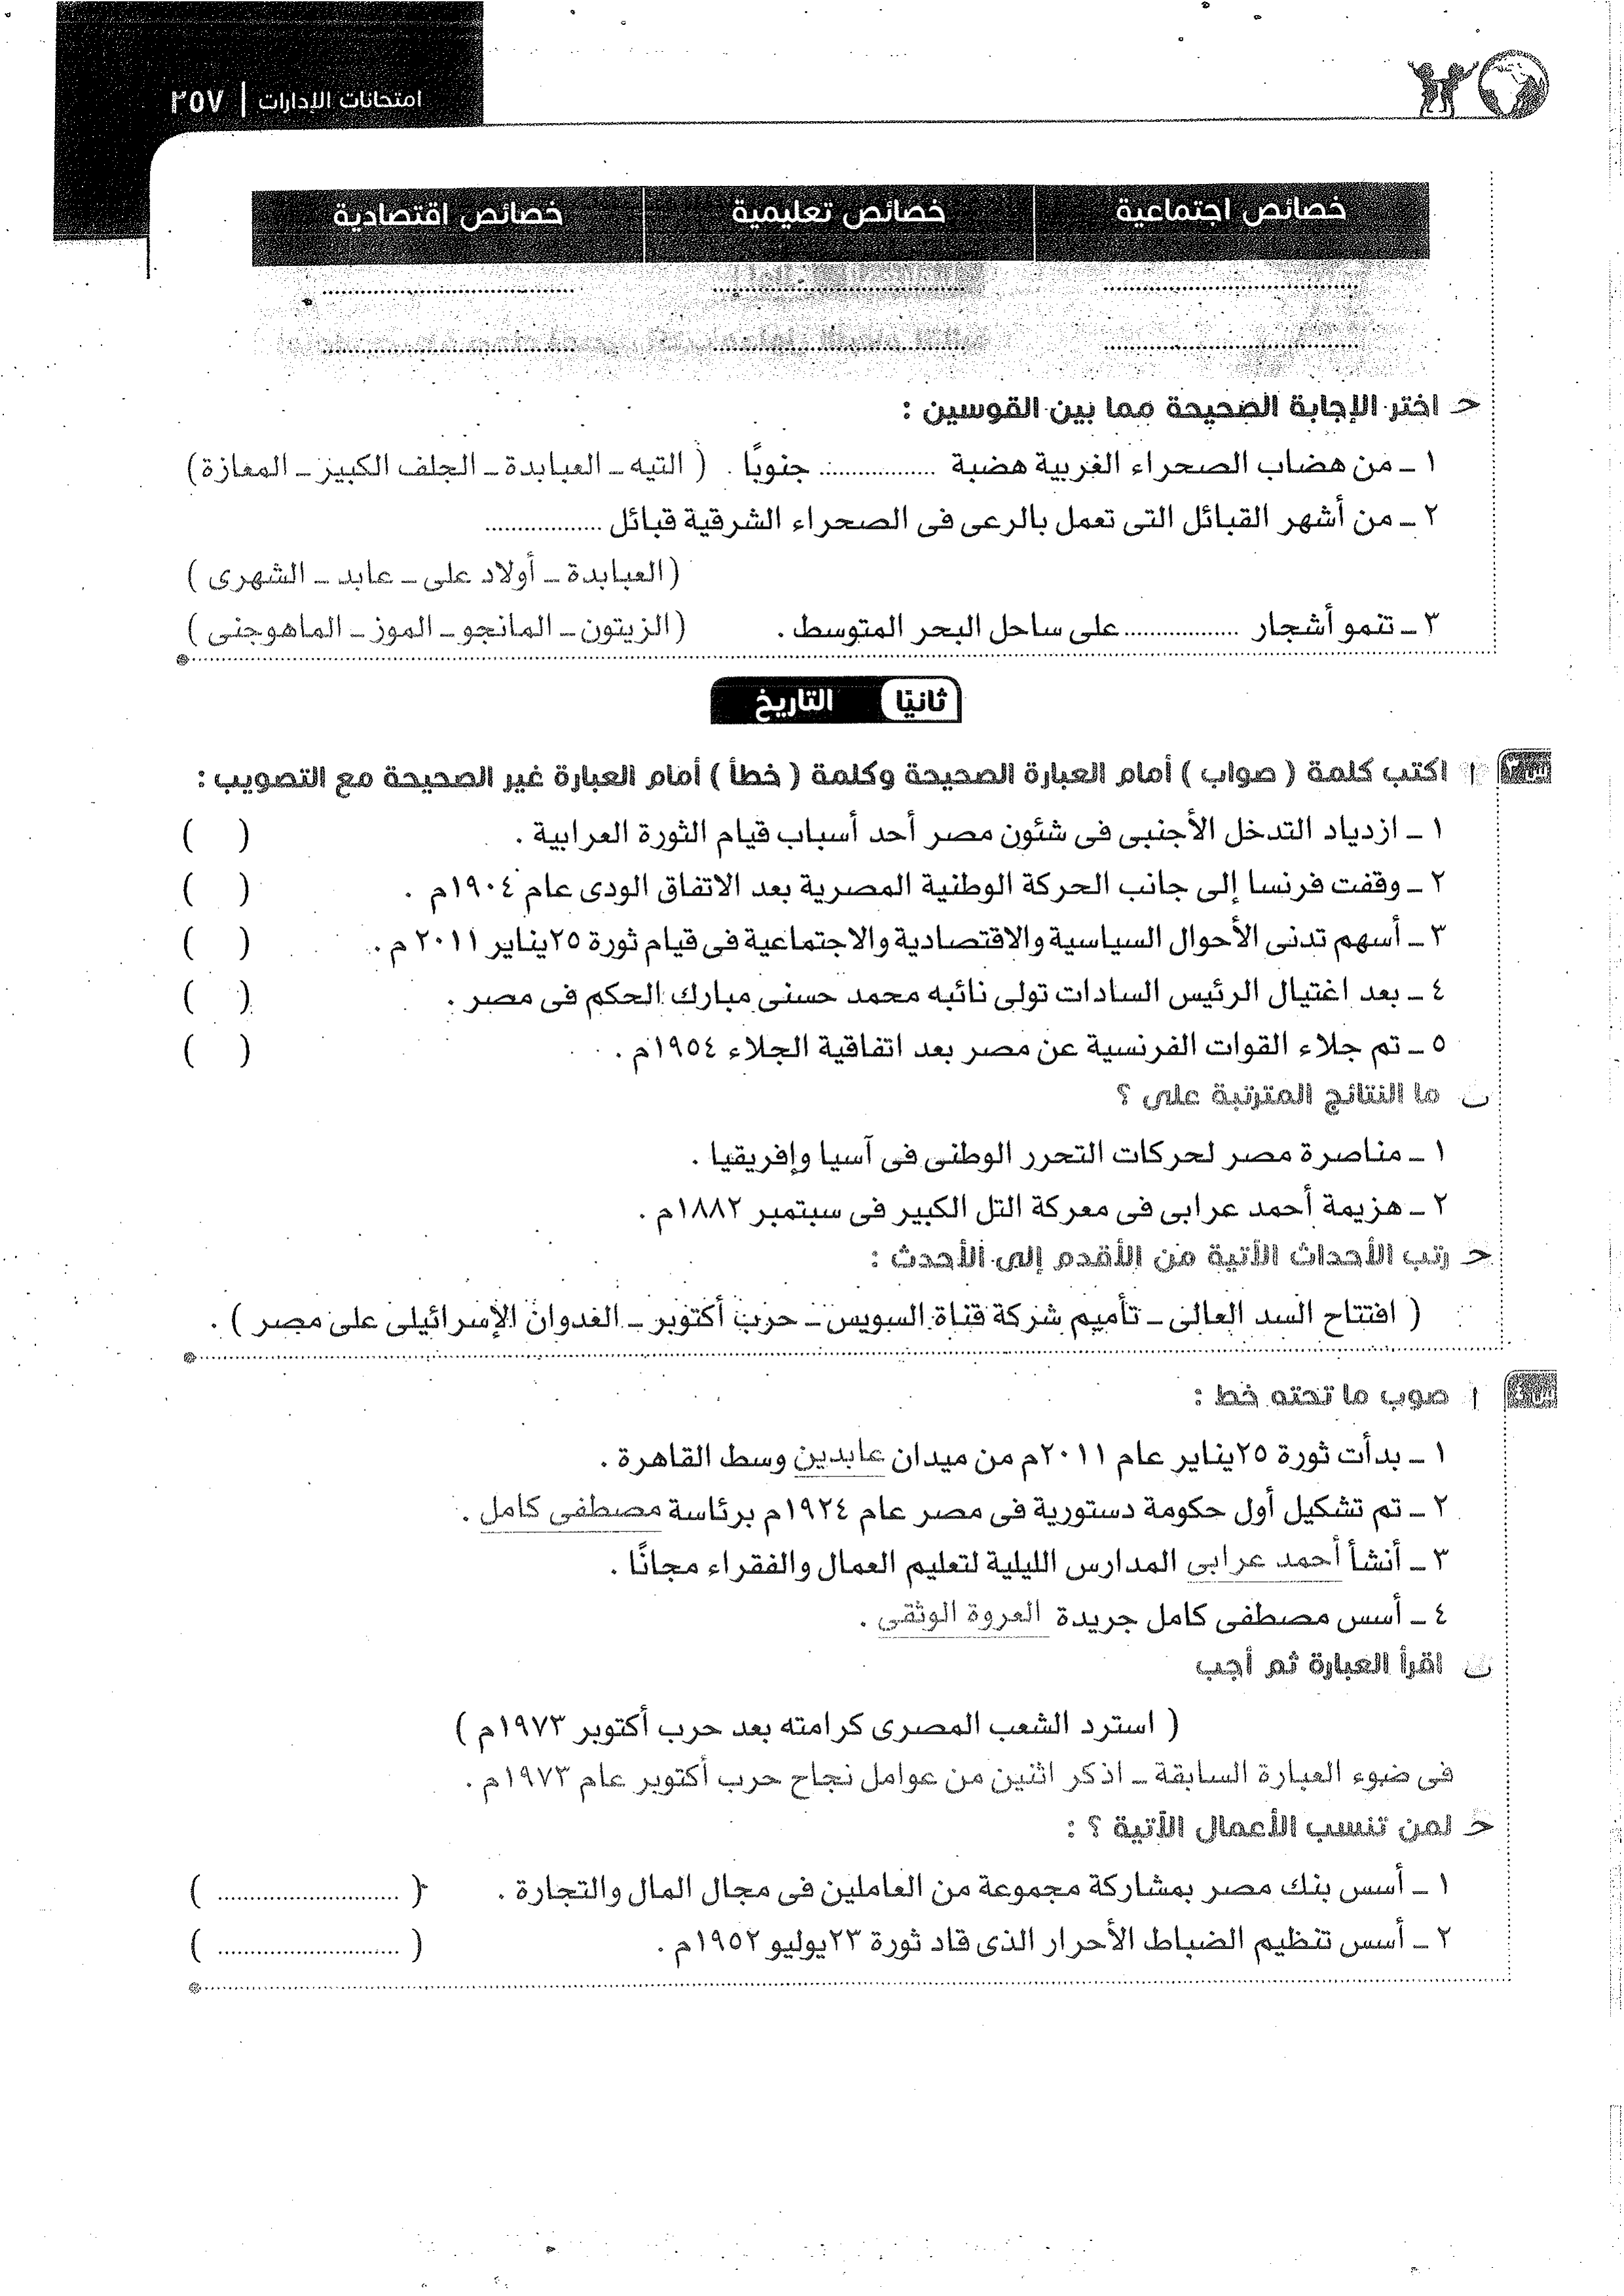 امتحانات الإدارات | ٢٥٧
خصائص اجتماعية خصائص تعليمية خصائص اقتصادية
حـ اختر الإجابة الصحيحة مما بين القوسين :
١ ـ من هضاب الصحراء الغربية هضبة ................ جنوبًا . ( التيه ـ العبابدة ـ الجلف الكبير ـ المعازة )
٢ ـ من أشهر القبائل التى تعمل بالرعى فى الصحراء الشرقية قبائل ................
( العبابدة ـ أولاد على ـ عابد ـ الشهرى )
٣ ـ تنمو أشجار ................ على ساحل البحر المتوسط . ( الزيتون ـ المانجو ـ الموز ـ الماهوجنى )
ثانيًا التاريخ
ا اكتب كلمة ( صواب ) أمام العبارة الصحيحة وكلمة ( خطأ ) أمام العبارة غير الصحيحة مع التصويب :
١ ـ ازدياد التدخل الأجنبى فى شئون مصر أحد أسباب قيام الثورة العرابية . ( )
٢ ـ وقفت فرنسا إلى جانب الحركة الوطنية المصرية بعد الاتفاق الودى عام ١٩٠٤م . ( )
٣ ـ أسهم تدنى الأحوال السياسية والاقتصادية والاجتماعية فى قيام ثورة ٢٥يناير ٢٠١١ م . ( )
٤ ـ بعد اغتيال الرئيس السادات تولى نائبه محمد حسنى مبارك الحكم فى مصر . ( )
٥ ـ تم جلاء القوات الفرنسية عن مصر بعد اتفاقية الجلاء ١٩٥٤م . ( )
ب ما النتائج المترتبة على ؟
١ ـ مناصرة مصر لحركات التحرر الوطنى فى آسيا وإفريقيا .
٢ ـ هزيمة أحمد عرابى فى معركة التل الكبير فى سبتمبر ١٨٨٢م .
حـ رتب الأحداث الآتية من الأقدم إلى الأحدث :
( افتتاح السد العالى ـ تأميم شركة قناة السويس ـ حرب أكتوبر ـ العدوان الإسرائيلى على مصر ) .
ا صوب ما تحته خط :
١ ـ بدأت ثورة ٢٥يناير عام ٢٠١١م من ميدان عابدين وسط القاهرة .
٢ ـ تم تشكيل أول حكومة دستورية فى مصر عام ١٩٢٤م برئاسة مصطفى كامل .
٣ ـ أنشأ أحمد عرابى المدارس الليلية لتعليم العمال والفقراء مجانًا .
٤ ـ أسس مصطفى كامل جريدة العروة الوثقى .
ب اقرأ العبارة ثم أجب
( استرد الشعب المصرى كرامته بعد حرب أكتوبر ١٩٧٣م )
فى ضوء العبارة السابقة ـ اذكر اثنين من عوامل نجاح حرب أكتوبر عام ١٩٧٣م .
حـ لمن تنسب الأعمال الآتية ؟ :
١ ـ أسس بنك مصر بمشاركة مجموعة من العاملين فى مجال المال والتجارة . ( ......................... )
٢ ـ أسس تنظيم الضباط الأحرار الذى قاد ثورة ٢٣يوليو ١٩٥٢م . ( ......................... )